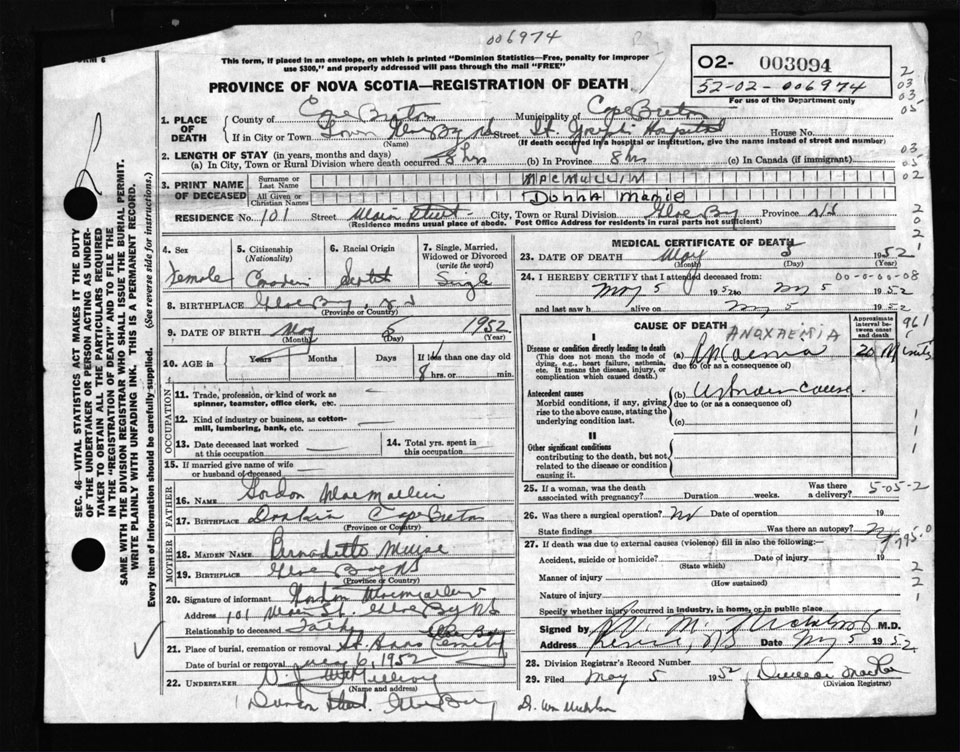 006974
FORM 6
This form, if placed in an envelope, on which is printed "Dominion Statistics—Free, penalty for improper
use $300," and properly addressed will pass through the mail "FREE"
PROVINCE OF NOVA SCOTIA—REGISTRATION OF DEATH
O2- 003094
52-02-006974
For use of the Department only
1. PLACE OF DEATH
County of Cape Breton Municipality of Cape Breton
If in City or Town Town Glace Bay NS Street St. Joseph Hospital House No.
(Name) (If death occurred in a hospital or institution, give the name instead of street and number)
2. LENGTH OF STAY (in years, months and days)
(a) In City, Town or Rural Division where death occurred 8 hrs (b) In Province 8 hrs (c) In Canada (if immigrant)
3. PRINT NAME OF DECEASED
Surname or Last Name MACMULLIN
All Given or Christian Names DONNA MARIE
RESIDENCE No. 101 Street Main Street City, Town or Rural Division Glace Bay Province NS
(Residence means usual place of abode. Post Office Address for residents in rural parts not sufficient)
4. Sex Female
5. Citizenship (Nationality)
6. Racial Origin
7. Single, Married, Widowed or Divorced (write the word) Single
8. BIRTHPLACE Glace Bay, N.S
(Province or Country)
9. DATE OF BIRTH May 5 1952
(Month) (Day) (Year)
10. AGE in Years Months Days If less than one day old
8 hrs. or min.
OCCUPATION
11. Trade, profession, or kind of work as
spinner, teamster, office clerk, etc.
12. Kind of industry or business, as cotton-
mill, lumbering, bank, etc.
13. Date deceased last worked
at this occupation
14. Total yrs. spent in
this occupation
15. If married give name of wife
or husband of deceased
FATHER
16. NAME Gordon MacMullin
17. BIRTHPLACE Donkin Cape Breton
(Province or Country)
MOTHER
18. MAIDEN NAME Bernadette
19. BIRTHPLACE Glace Bay NS
(Province or Country)
20. Signature of informant Gordon MacMullin
Address 101 Main St. Glace Bay NS
Relationship to deceased Father
21. Place of burial, cremation or removal St. Anns Cemetery Glace Bay
Date of burial or removal May 6, 1952
22. UNDERTAKER
(Name and address)
Glace Bay
MEDICAL CERTIFICATE OF DEATH
23. DATE OF DEATH May 5 1952
(Month) (Day) (Year)
24. I HEREBY CERTIFY that I attended deceased from 00-0-00-08
May 5 1952 to May 5 1952
and last saw h alive on May 5 1952
CAUSE OF DEATH
Approximate interval between onset and death
961
I
Disease or condition directly leading to death
(This does not mean the mode of
dying, e.g., heart failure, asthenia,
etc. It means the disease, injury, or
complication which caused death.)
ANOXAEMIA
(a) 20 Minutes
due to (or as a consequence of)
Antecedent causes
Morbid conditions, if any, giving
rise to the above cause, stating the
underlying condition last.
(b) Unknown cause
due to (or as a consequence of)
(c)
II
Other significant conditions
contributing to the death, but not
related to the disease or condition
causing it.
25. If a woman, was the death
associated with pregnancy? Duration weeks. Was there a delivery?
5-05-2
26. Was there a surgical operation? No Date of operation 19
State findings Was there an autopsy? No
795.0
27. If death was due to external causes (violence) fill in also the following:—
Accident, suicide or homicide? Date of injury 19
(State which)
Manner of injury
(How sustained)
Nature of injury
Specify whether injury occurred in industry, in home, or in public place
Signed by M.D.
Address Date May 5 1952
28. Division Registrar's Record Number
29. Filed May 5 1952
(Division Registrar)
SEC. 46—VITAL STATISTICS ACT MAKES IT THE DUTY
OF THE UNDERTAKER OR PERSON ACTING AS UNDER-
TAKER TO OBTAIN ALL THE PARTICULARS REQUIRED
IN THE "REGISTRATION OF DEATH" AND TO FILE THE
SAME WITH THE DIVISION REGISTRAR WHO SHALL ISSUE THE BURIAL PERMIT.
WRITE PLAINLY WITH UNFADING INK. THIS IS A PERMANENT RECORD.
Every item of information should be carefully supplied. (See reverse side for instructions.)